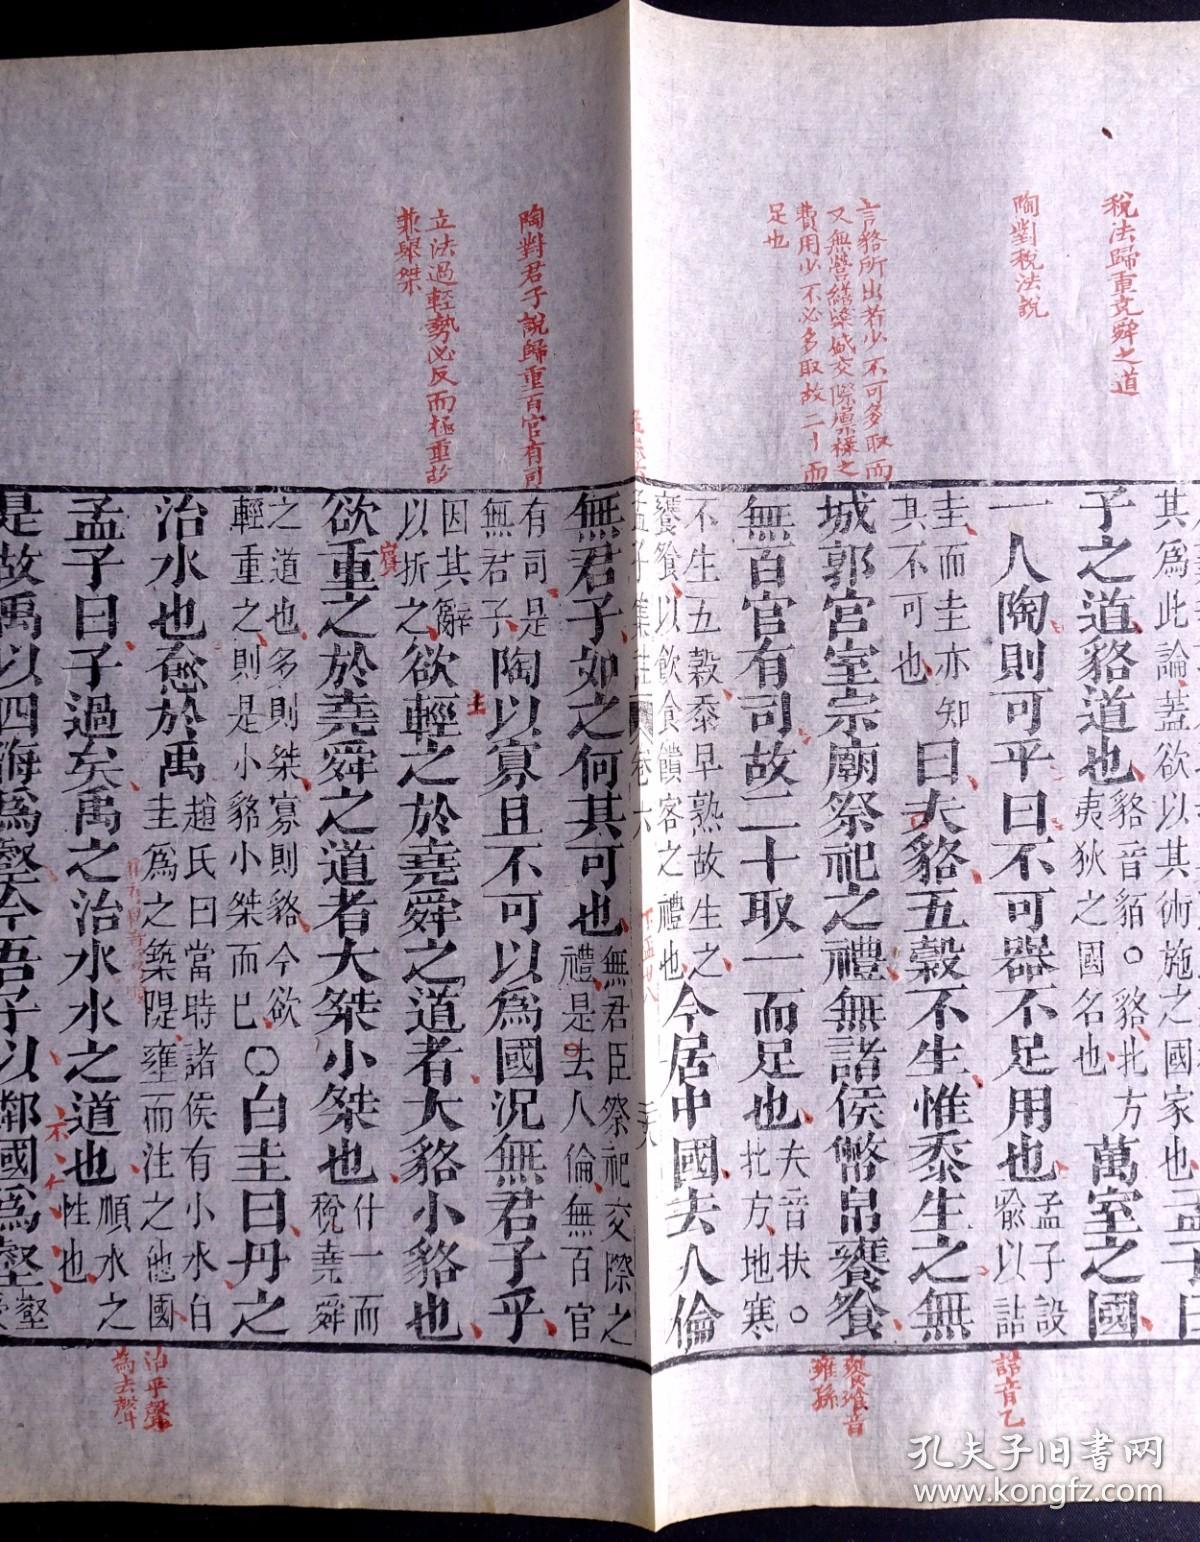 稅法歸重堯舜之道
陶對稅法說
言貉所出若少不可多取而
又無營繕築城交際廩祿之
費用少不必多取故二十而
足也
陶對君子說歸重百官有司
立法過輕勢必反而極重故
兼舉桀
其爲此論蓋欲以其術施之國家也孟子曰
子之道貉道也貉音貊○貉北方
夷狄之國名也萬室之國
一人陶則可乎曰不可器不足用也孟子設
喩以詰
圭而圭亦知
其不可也曰夫貉五穀不生惟黍生之無
城郭宮室宗廟祭祀之禮無諸侯幣帛饔飧
無百官有司故二十取一而足也夫音扶○
北方地寒
不生五穀黍早熟故生之
饔飧以飮食饋客之禮也今居中國去人倫
孟子集註 卷六
下孟廿八
三六
無君子如之何其可也無君臣祭祀交際之
禮是去人倫無百官
有司是
無君子陶以寡且不可以爲國況無君子乎
因其辭
以折之欲輕之於堯舜之道者大貉小貉也
欲重之於堯舜之道者大桀小桀也什一而
稅堯舜
之道也多則桀寡則貉今欲
輕重之則是小貉小桀而已○白圭曰丹之
治水也愈於禹趙氏曰當時諸侯有小水白
圭爲之築隄壅而注之他國
孟子曰子過矣禹之治水水之道也順水之
性也
是故禹以四海爲壑今吾子以鄰國爲壑壑
詰音乙
饔飧音
雍孫
治平聲
為去聲
孔夫子旧书网
www.kongfz.com